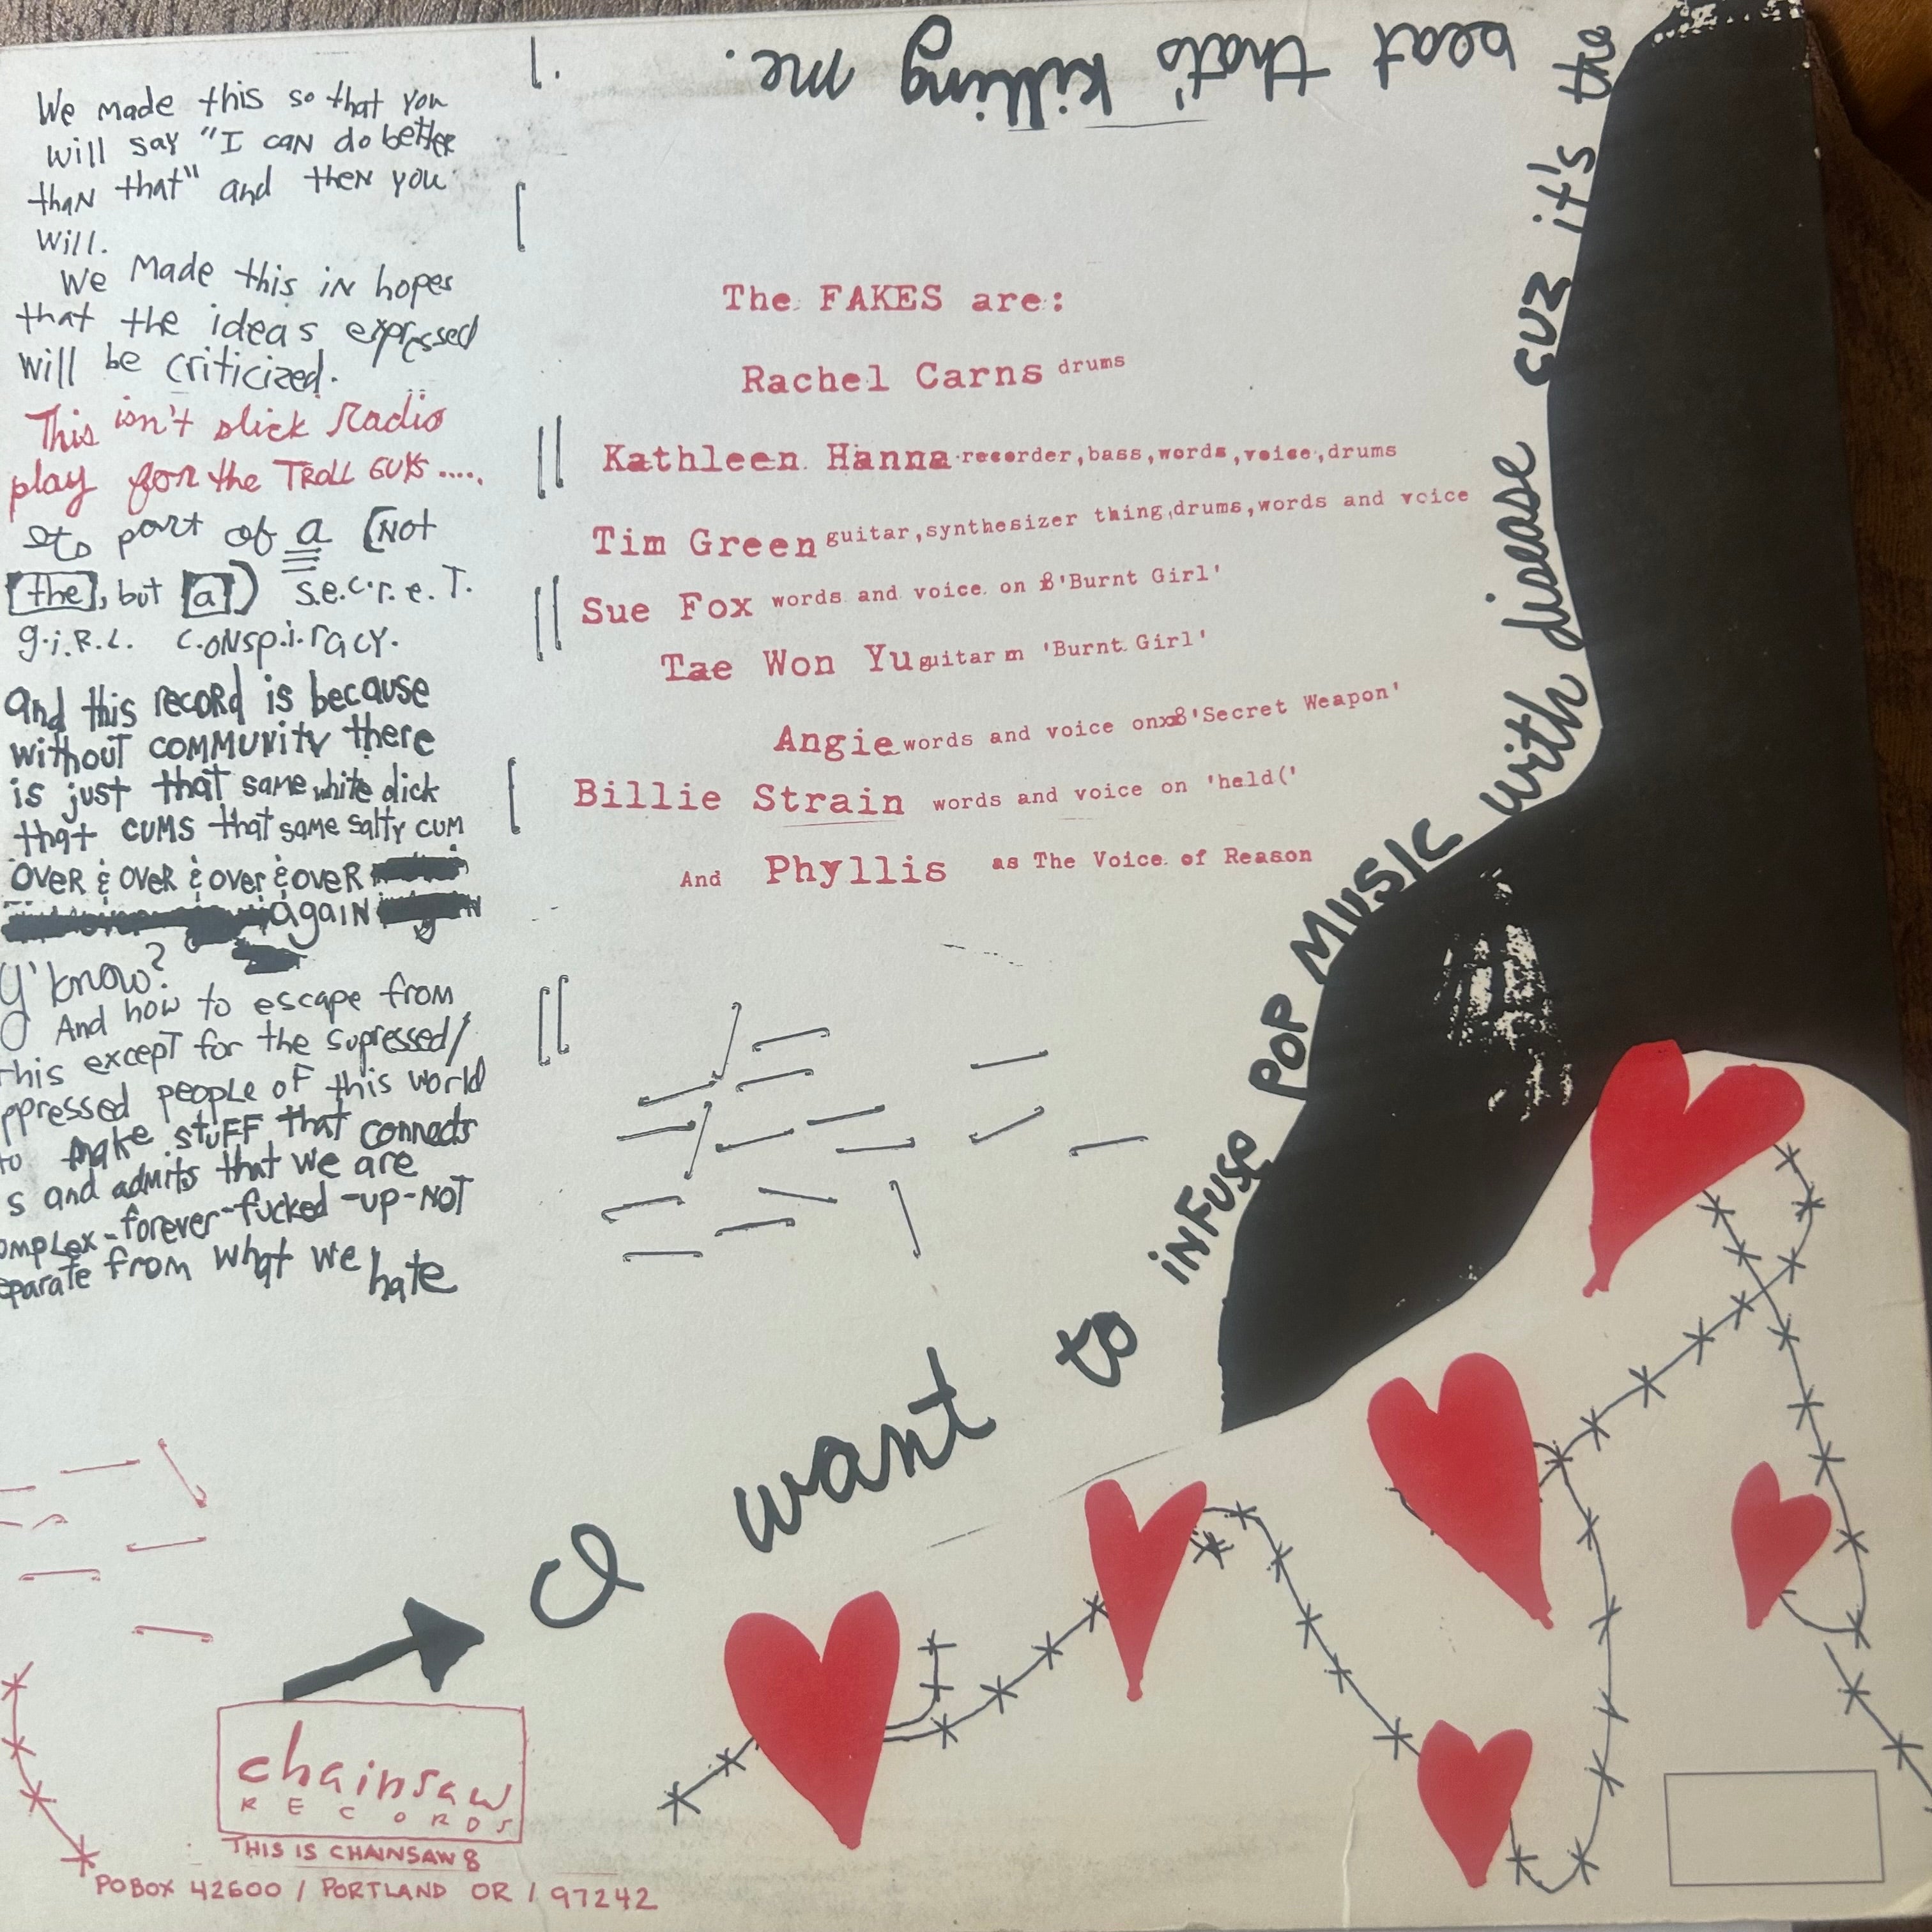 We made this so that you
will say "I can do better
than that" and then you
will.
We Made this in hopes
that the ideas expressed
will be criticized.
This isn't slick Radio
play for the TROLL GUYS .....
Its part of a [NOT
[the], but [a]) s.e.c.r.e.T.
g.i.R.L. c.oNsp.i.racy.
and this record is because
without COMMUNITY there
is just that same white dick
that CUMS that same salty cum
OVER & OVER & over & oveR
again
y'know?
And how to escape from
this except for the supressed/
ppressed people of this world
to make stuff that connects
s and admits that we are
omplex-forever-fucked-up-NOT
eparate from what we hate
The FAKES are:
Rachel Carns drums
Kathleen Hanna recorder,bass,words,voice,drums
Tim Green guitar,synthesizer thing,drums,words and voice
Sue Fox words and voice on 'Burnt Girl'
Tae Won Yu guitar 'Burnt Girl'
Angie words and voice on 'Secret Weapon'
Billie Strain words and voice on 'held('
And Phyllis as The Voice of Reason
I want to inFuse POP MUSIC with disease cuz it's the
beat that's killing me.
chainsaw
RECORDS
THIS IS CHAINSAW 8
PO BOX 42600 / PORTLAND OR / 97242